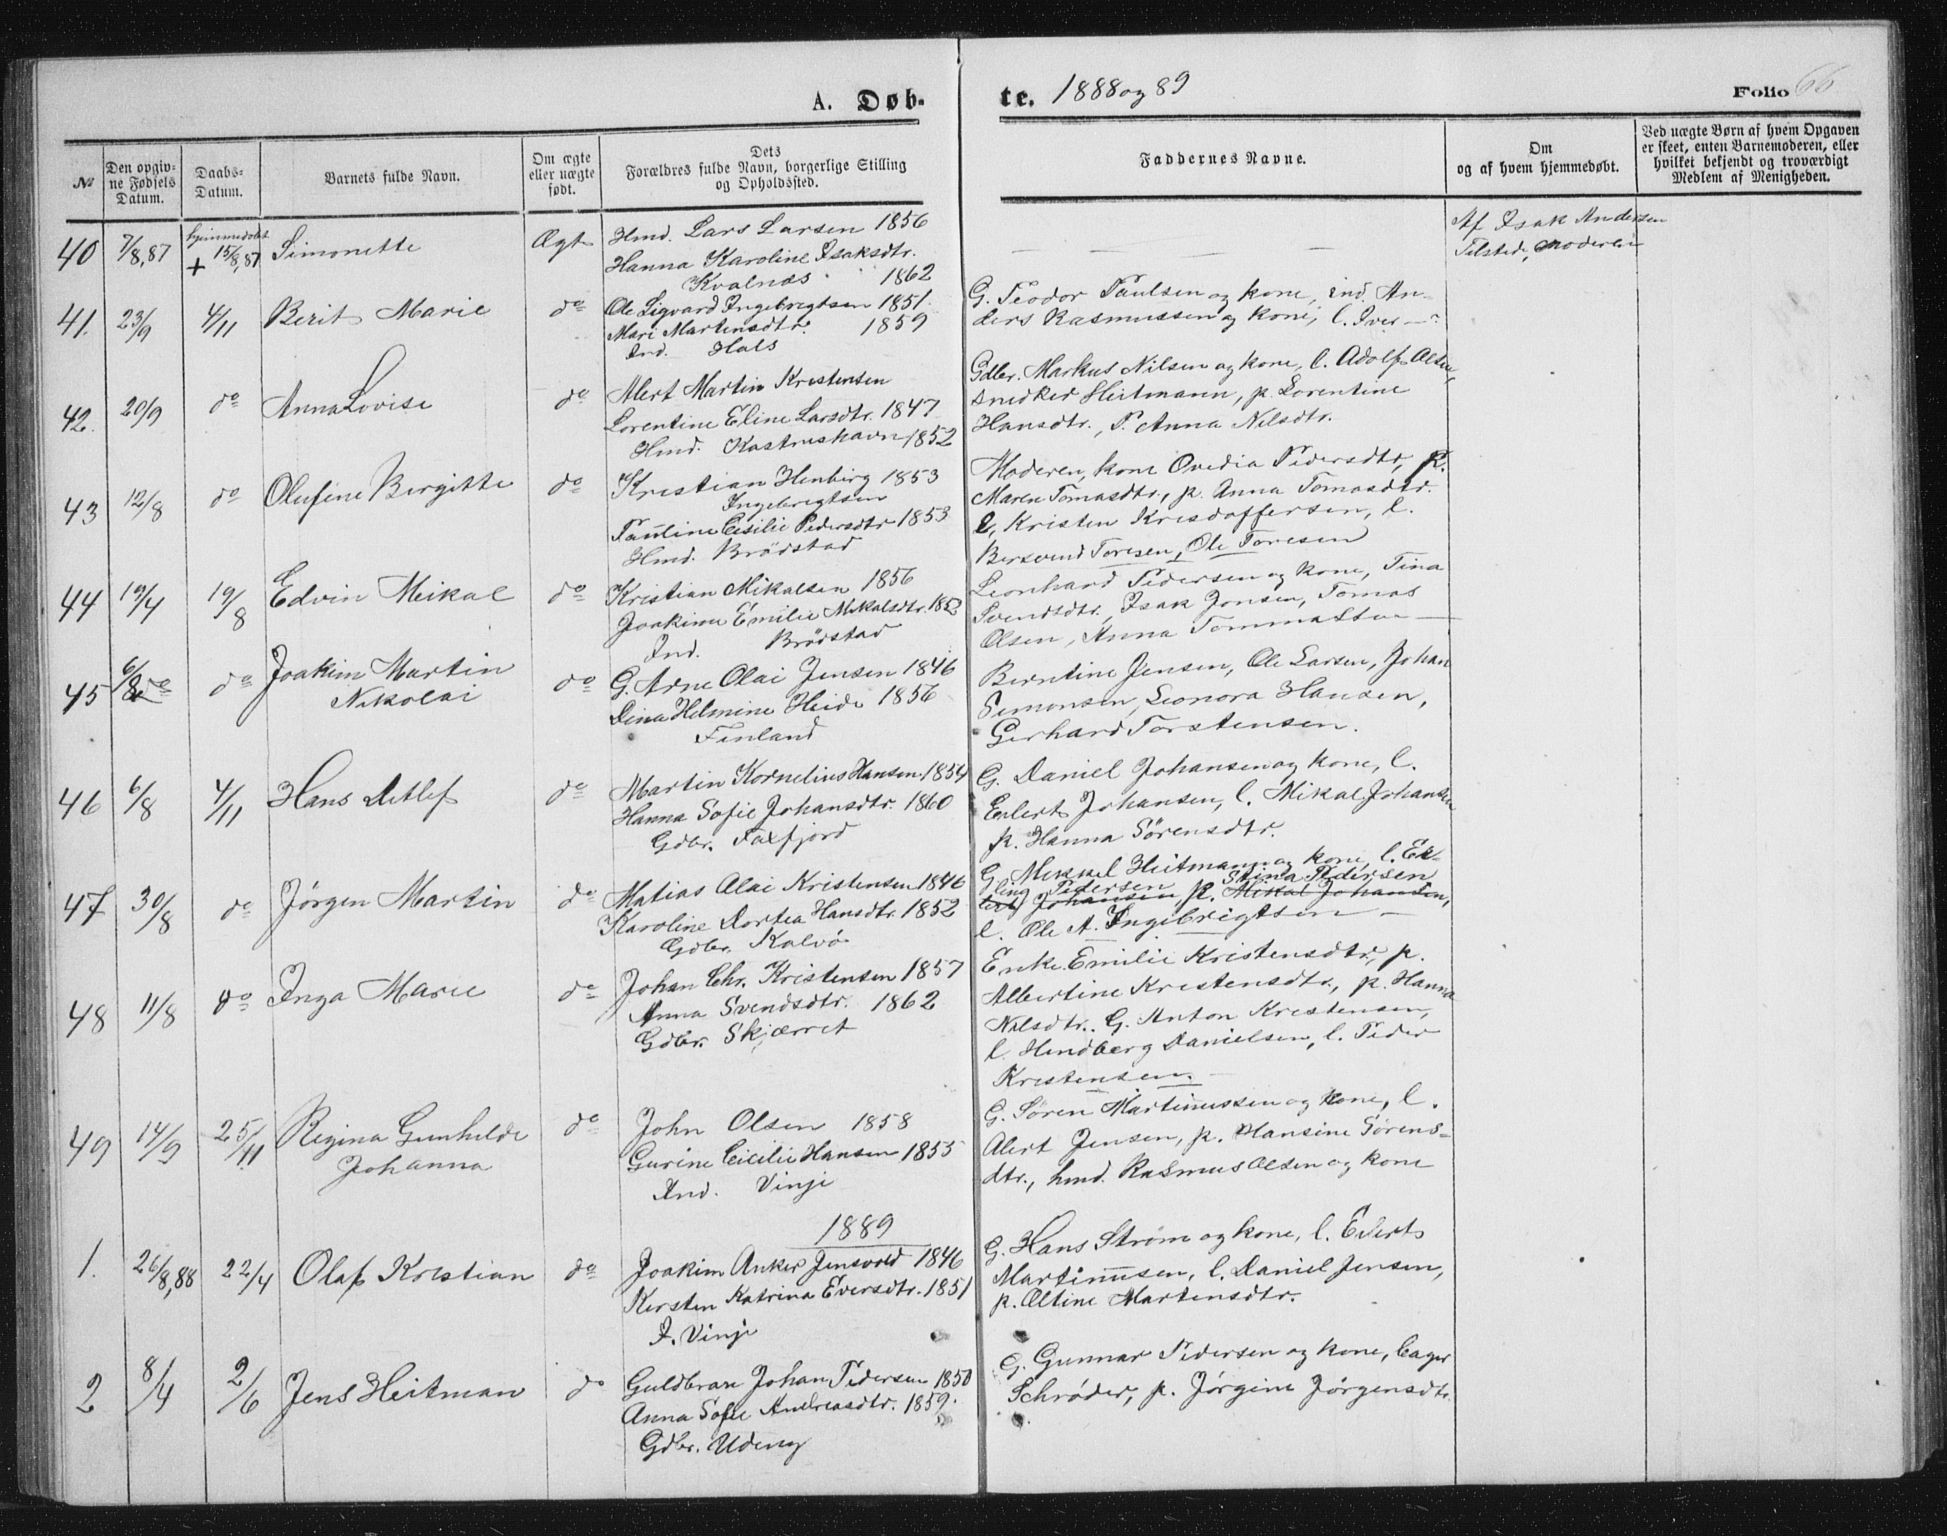 A. Døb-
te. 1888 og 89
Folio 66
№
Den opgiv-
ne Fødsels
Datum.
Daabs-
Datum.
Barnets fulde Navn.
Om ægte
eller uægte
født.
Dets
Forældres fulde Navn, borgerlige Stilling
og Opholdssted.
Faddernes Navne.
Om
og af hvem hjemmedøbt.
Ved uægte Børn af hvem Opgaven
er skeet, enten Barnemoderen, eller
hvilket bekjendt og troværdigt
Medlem af Menigheden.
40 7/8,87 hjemmedøbt
+ 15/8,87 Simonette Ægt
Hmd. Lars Larsen 1856
Hanna Karoline Isaksdtr.
Kvalnæs 1862
Af Isak Andersen
Tilsted, Moderen
41. 23/9 4/11 Berit Marie do
Ole Sigvard Ingebregtsen 1851.
Mari Martensdtr. 1859
Ind. Hals
G. Teodor Paulsen og kone, ind. An-
ders Rasmussen og kone, l. Iver —
42. 20/9 do Anna Lovise do
Alert Martin Kristensen
Lorentine Eline Larsdtr. 1847
Hmd. Kastneshavn 1852
Gdbr. Markus Nilsen og kone, l. Adolf Olsen,
snedker Heitmann, p. Lorentine
Hansdtr., P. Anna Nilsdtr.
43 12/8 do Olufine Bergitte do
Kristian Henbirg 1853
Ingebregtsen
Pauline Cesilie Pedersdtr 1853
Hmd. Brödstad
Moderen, kone Ovedia Pedersdtr, p.
Maren Tomasdtr., p. Anna Tomasdtr.
l, Kristen Kresdoffersen, l.
Bersvend Toresen, Ole Toresen
44 19/4 19/8 Edvin Meikal do
Kristian Mikalsen 1856
Joakime Emilie Mekalsdtr. 1852
Ind. Brödstad
Leonhard Pedersen og kone, Tina
Svendsdtr, Isak Jonsen, Tomas
Olsen, Anna
45 6/8 do Joakim Martin
Nikolai do
G. Arne Olai Jensen 1846
Dina Helmine Heide 1856
Finland
Berntine Jensen, Ole Larsen, Johan
Semonsen, Leonora Hansen,
Gerhard Torstensen.
46 6/8 4/11 Hans Detlef do
Martin Kornelius Hansen 1854
Hanna Sofie Johansdtr. 1860
Gdbr. Faxfjord
G. Daniel Johansen og kone, l.
Evlert Johansen, l. Mikal Johansen
p. Hanna Sörensdtr.
47 30/8 do Jörgen Martin do
Matias Olai Kristensen 1846
Karoline Dortea Hansdtr. 1852
Gdbr. Kalvö
G. Mekkel Heitmann og kone, l. Ed-
Pedersen Stina Pedersen
Johansen p. Mikal Johansen,
l. Ole A. Ingebrigtsen —
48 11/8 do Inga Marie do
Johan Chr. Kristensen 1857
Anna Svendsdtr. 1862
Gdbr. Skjærret
Enke Emilie Kristensdtr, p.
Albertine Kristensdtr., p. Hanna
Nilsdtr. G. Anton Kristensen,
l. Hendberg Danielsen, l. Peder
Kristensen.
49 14/9 25/11 Regina Gunhilde
Johanna do
John Olsen 1858
Gurine Cicilie Hansen 1855
Ind. Vinje
G. Sören Martinussen og kone, l.
Alert Jensen, p. Hansine Sörens-
dtr., hmd. Rasmus Olsen og kone
1889
1. 26/8,88 22/4 Olaf Kristian do
Joakim Anker Jensvold 1846
Kersten Katrina Eversdtr. 1851
I. Vinje
G. Hans Strøm og kone, l. Evert
Martinusen, l. Daniel Jensen,
p. Oltine Martensdtr.
2 8/4 2/6 Jens Heitman do
Guldbran Johan Pedersen 1850
Anna Sofie Andreasdtr. 1859.
Gdbr. Udeng
G. Gunnar Pedersen og kone,
Schrøder, p. Jörgine Jörgensdtr